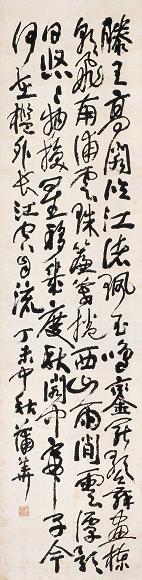 滕王高閣臨江渚珮玉鳴鑾罷歌舞畫棟
朝飛南浦雲珠簾暮捲西山雨閒雲潭影
日悠々物換星移幾度秋閣中帝子今
何在檻外長江空自流丁未中秋蒲華